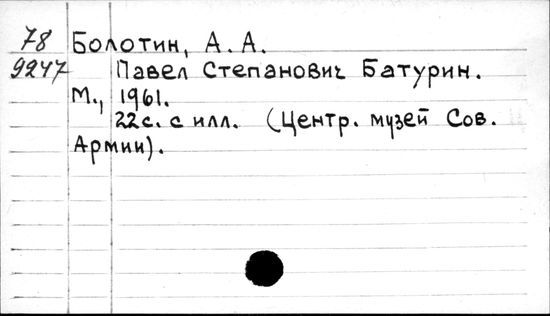 78 Болотин, А. А.
9247 Павел Степанович Батурин.
М., 1961.
22с. с илл. (Центр. музей Сов.
Армии).